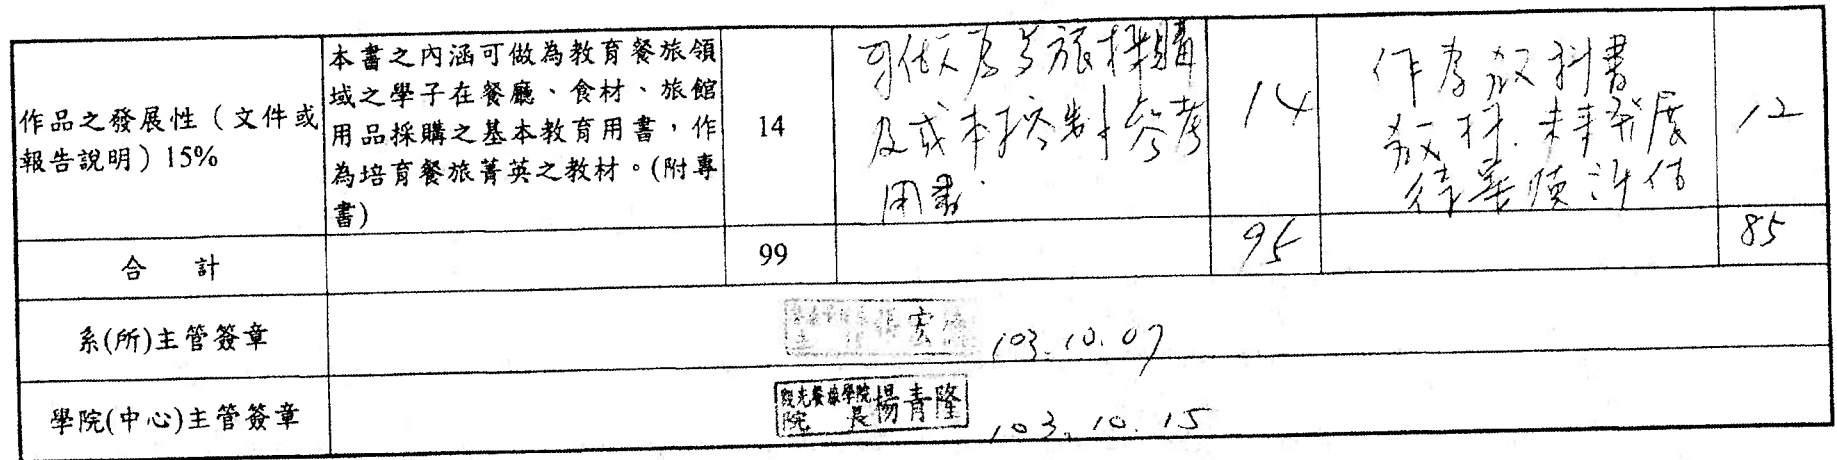 作品之發展性（文件或
報告說明）15%
本書之內涵可做為教育餐旅領
域之學子在餐廳、食材、旅館
用品採購之基本教育用書，作
為培育餐旅菁英之教材。(附專
書)
14
可做為考旅採購
及成本控制參考
用書
14
作為教科書
教材.未來發展
待業績評估
12
合 計
99
95
85
系(所)主管簽章
103.10.07
學院(中心)主管簽章
觀光餐旅學院
院 長 楊青隆
103.10.15